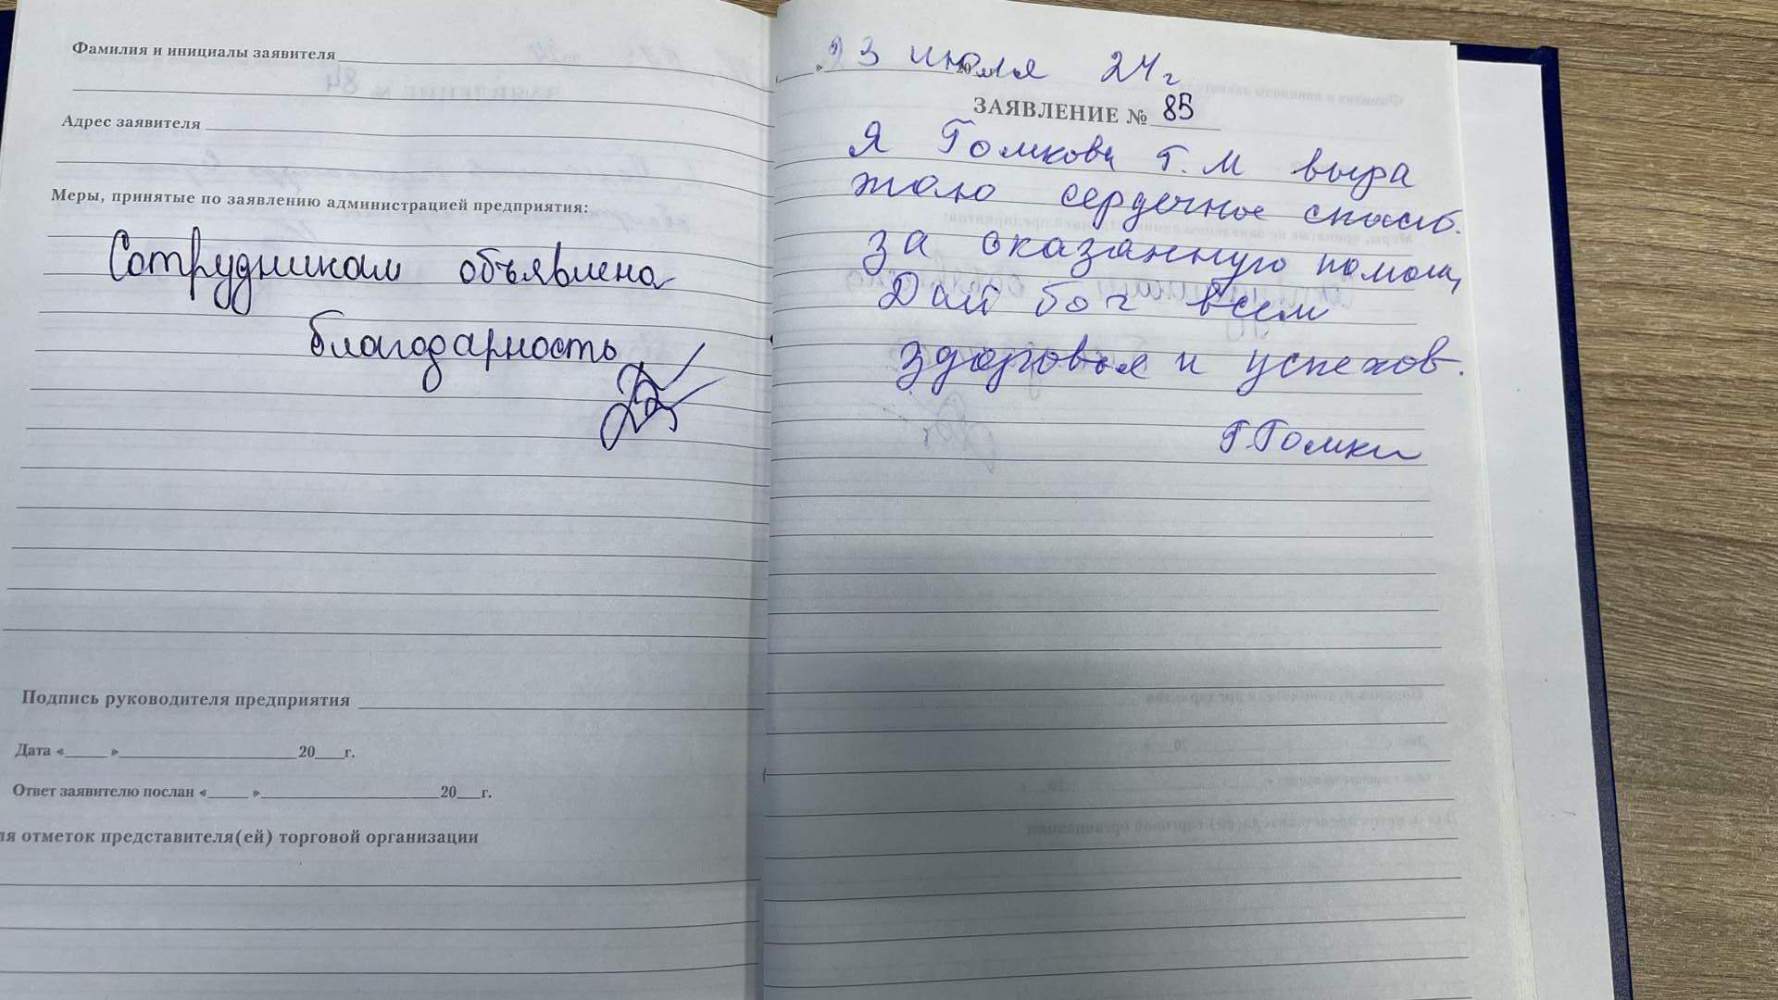 Фамилия и инициалы заявителя
Адрес заявителя
Меры, принятые по заявлению администрацией предприятия:
Сотрудникам объявлена
благодарность
Подпись руководителя предприятия
Дата «____» ____________ 20___г.
Ответ заявителю послан «____» ____________ 20___г.
ля отметок представителя(ей) торговой организации
23 июля 24г
20
ЗАЯВЛЕНИЕ № 85
Я Гомкова Г. М выра
жаю сердечное спасиб.
за оказанную помощ,
Дай бог всем
здоровья и успехов.